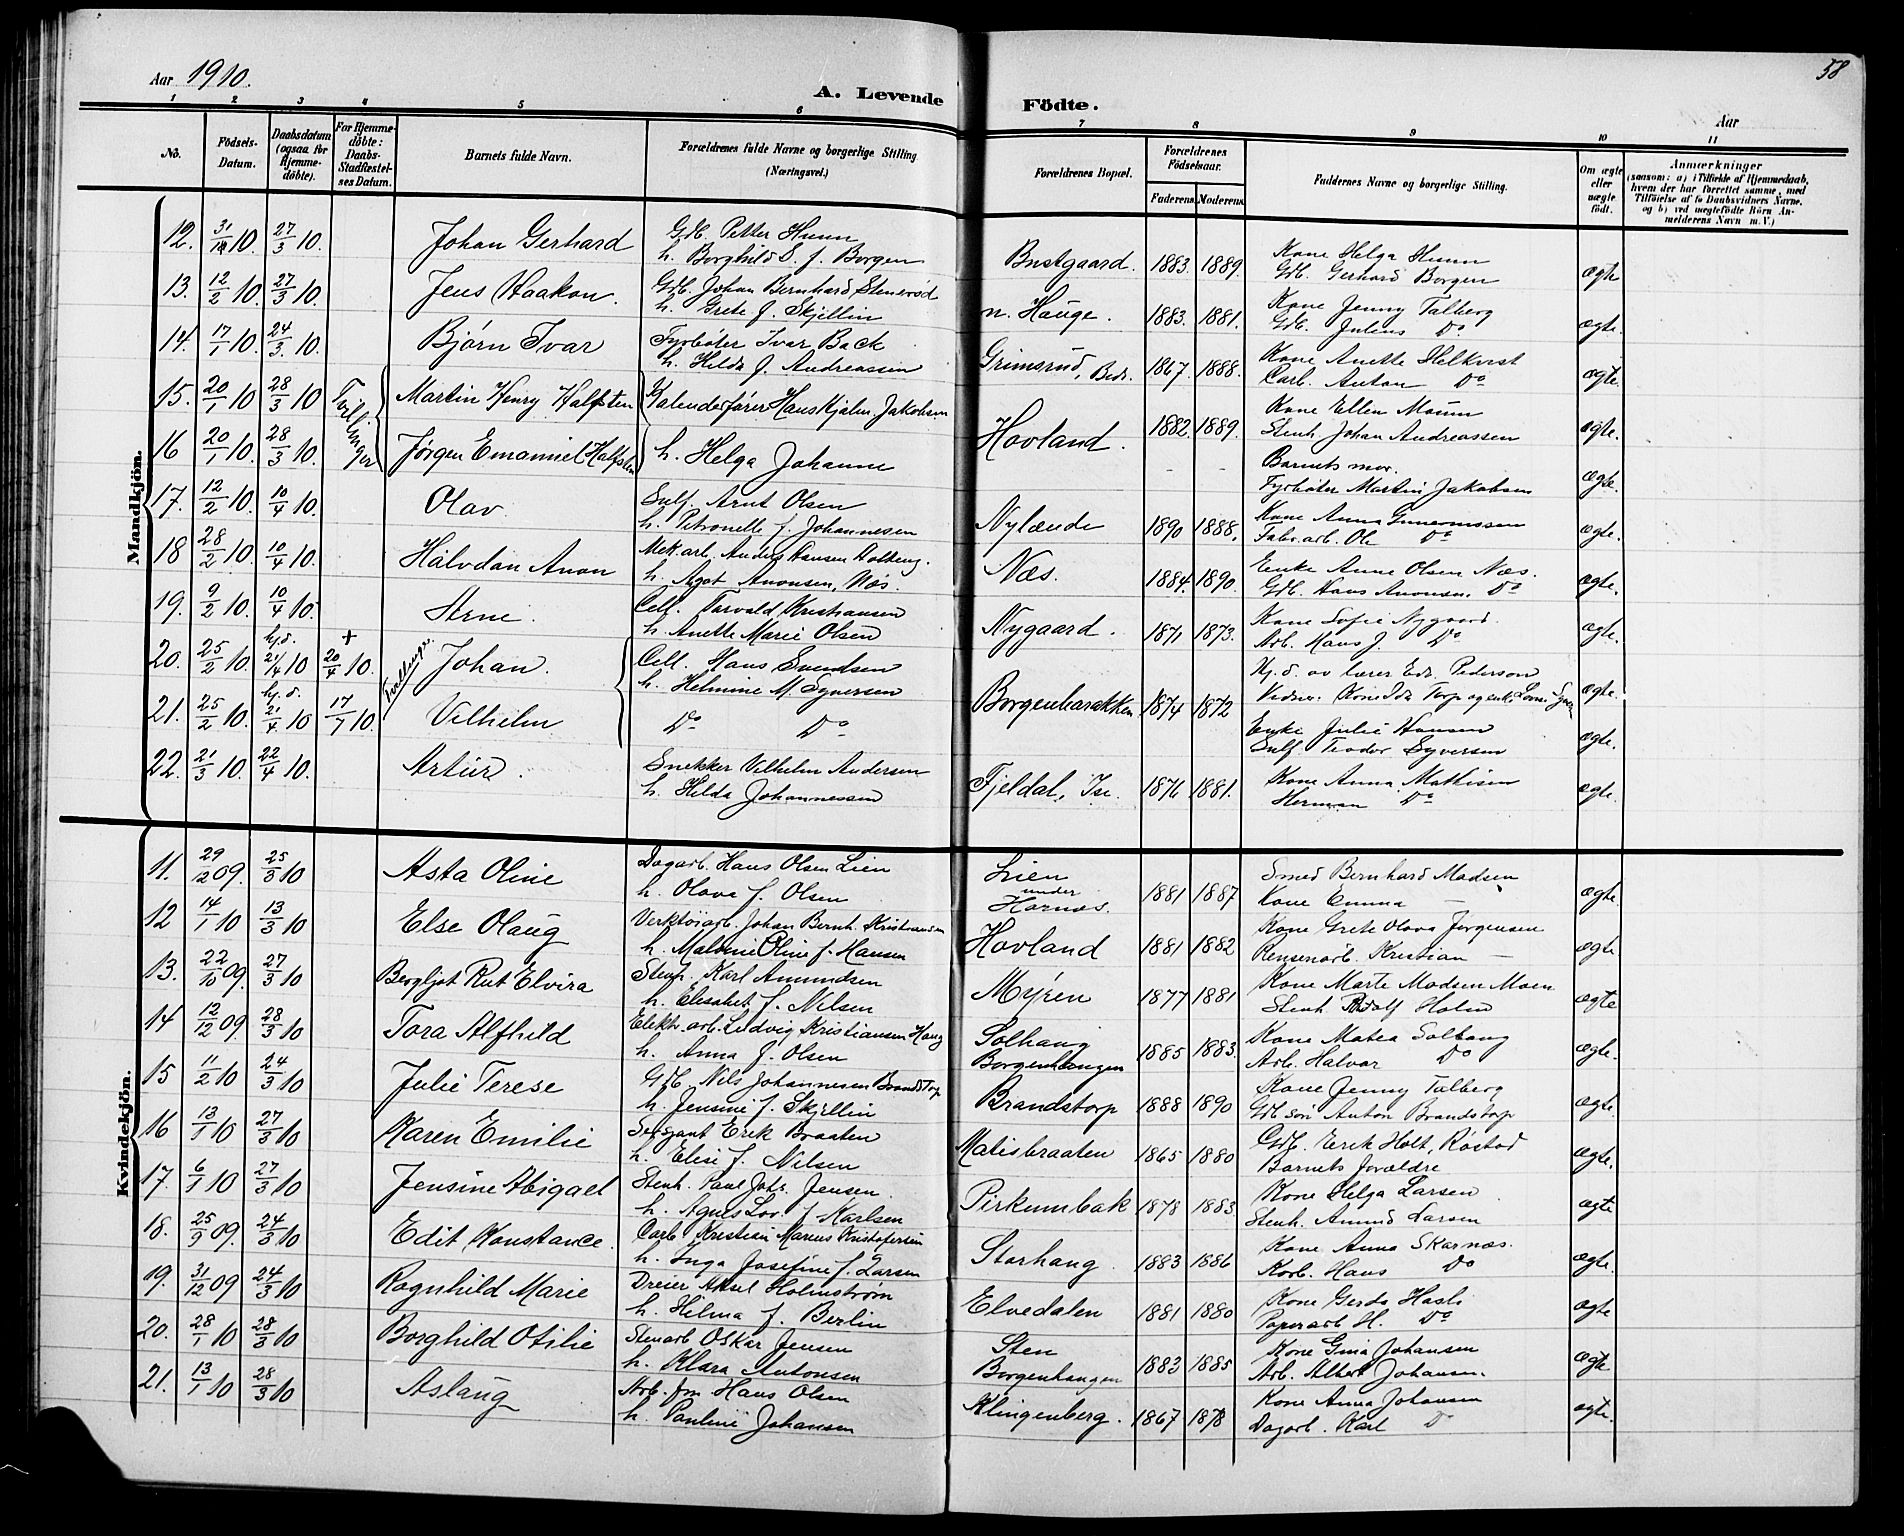 Aar 1910.
A. Levende Födte.
58
Aar
1 2 3 4 5 6 7 8 9 10 11
No.
Födsels-Datum.
Daabsdatum (ogsaa for Hjemme-döbte).
For Hjemme-döbte: Daabs-Stadfæstel-ses Datum.
Barnets fulde Navn.
Forældrenes fulde Navne og borgerlige Stilling (Næringsvei.)
Forældrenes Bopæl.
Forældrenes Födselsaar.
Faderens. Moderens.
Faddernes Navne og borgerlige Stilling.
Om ægte eller uægte födt.
Anmærkninger
(saasom: a) i Tilfælde af Hjemmedaab, hvem der har forrettet samme, med Tilföielse af to Daabsvidners Navne, og b) ved uægtefödte Börn An-melderens Navn m. V.)
Mandkjön.
12. 31/10. 27/3 10. Johan Gerhard Gdb. Petter Hunn Bustgaard. 1883. 1889. Kone Helga Hunn ægte
h. Borghild D. f. Borgen Gdb. Gerhard Borgen
13. 12/2 10. 27/3 10. Jens Haakon. Gdb. Johan Bernhard Stenerød n. Hauge. 1883. 1881. Kone Jenny Talberg ægte.
h. Grete f. Skjellin Gdb. Julius Do
14. 17/1 10. 24/3. 10. Bjørn Ivar Fyrbøter Ivar Back Grimsrud, Bedr. 1867. 1888. Kone Anette Helkvist ægte.
h. Hilda f. Andreassen Carb. Anton Do
15. 20/1 10 28/3 10 Tvillinger Martin Henry Halfsten Kalenderfører Hans Hjalm. Jakobsen Hovland. 1882. 1889. Kone Ellen Moum ægte.
Stenh. Johan Andreassen
16 20/1 10. 28/3 10. Jørgen Emanuel Halfsten h. Helga Johanne - - Barnets mor. ægte.
Fyrbøter Martin Jakobsen
17. 12/2 10. 10/4 10. Olav Sulf. Arnt Olsen Nylænde 1890 1888. Kone Anna Gunermossen ægte.
h. Petronelle f. Johannesen Fabr.arb. Ole Do
18 28/2 10. 10/4 10. Halvdan Anon Mek.arb. Anders Hansen Holberg. Næs. 1884. 1890. Enke Anne Olsen Næs. ægte.
h. Agot Anonsen, Næs. Gdb. Hans Anonsen. Do
19. 9/2 10. 10/4 10. Arne. Cell. Torvald Kristiansen Nygaard. 1871 1873. Kone Sofie Nygaard. ægte.
h. Anette Marie Olsen Arb. Hans J. Do
20. 25/2 10. hj.d. 21/4 10 + 20/4 10. Tvillinger Johan. Cell. Hans Svendsen Borgenbarakken 1874 1872 Hj.d. av lærer Edv. Pederson ægte.
h. Helmine M. Syversen Vidner. Kone Ida Torp og enke Lovise Syvers
21. 25/2 10. hj.d. 21/4 10 17/1 10. Vilhelm Do Do Enke Julie Hansen ægte.
Sulf. Teodor Syversen
22. 21/3 10. 22/4 10. Artur. Snekker Vilhelm Andersen Fjeldal, Ise. 1876 1881. Kone Anna Mathisen ægte.
h. Hilda Johannessen Herman Do
Kvindekjön.
11. 29/12 09. 25/3 10 Asta Oline Dagarb. Hans Olsen Lien Lien under Hornæs. 1881 1887 Smed Bernhard Madsen ægte.
h. Olava f. Olsen Kone Emma —
12 14/1 10 13/3 10 Else Olaug Verktøiarb. Johan Bernh. Kristiansen Hovland 1881 1882 Kone Grete Olava Jørgensen ægte
h. Malvine Oline f. Hansen Rensenarb. Kristian —
13. 22/10 09. 27/3 10 Bergljot Rut Elvira Stenh. Karl Amundsen Myren 1877 1881 Kone Marte Madsen Moen ægte
h. Elisabet f. Nilsen Stenh. Rolf Holm
14 12/12 09. 28/3 10 Tora Alfhild Elektr. arb. Ludvig Kristiansen Haug Solhaug Borgenhaugen 1885 1883. Kone Matea Solhaug ægte.
h. Anna f. Olsen Arb. Halvor Do
15 11/2 10 24/3 10 Julie Terese Gdb. Nils Johannesen Brandstorp Brandstorp 1888 1890 Kone Jenny Talberg ægte.
h. Jensine f. Skjellin Gdb. søn Anton Brandstorp
16 13/1 10 27/3 10 Karen Emilie Sersjant Erik Braaten Matisbraaten 1865 1880 Gdb. Erik Holt, Røstad ægte.
h. Elise f. Nilsen Barnets forældre
17. 6/1 10 27/3 10 Jensine Abigael Stenh. Paul Johs. Jensen. Pirkumbak 1878 1883 Kone Helga Larsen ægte
h. Agnes Lov. f. Karlsen Stenh. Amund Larsen
18. 25/9 09. 24/3 10 Edit Konstance. Carb. Kristian Marius Kristofersen Storhaug 1883 1886 Kone Anna Skarnæs. ægte.
h. Inga Josefine f. Larsen Korb. Hans Do
19. 31/12 09 24/3 10 Ragnhild Marie Dreier Aksel Holmstrøm Elvedalen 1881 1880 Kone Gerda Hasli ægte
h. Hilma f. Berlin Papirarb H. Do
20. 28/1 10 28/3 10 Borghild Otilie Stenarb Oskar Jensen Sten Borgenhaugen 1883 1885 Kone Gina Johansen ægte
h. Klara Antonsen Arb. Albert Johansen.
21. 13/1 10 28/3 10 Aslaug Arb. fm Hans Olsen Klingenberg. 1867 1878 Kone Anna Johansen ægte.
h. Pauline Johansen Dagarb. Karl Do